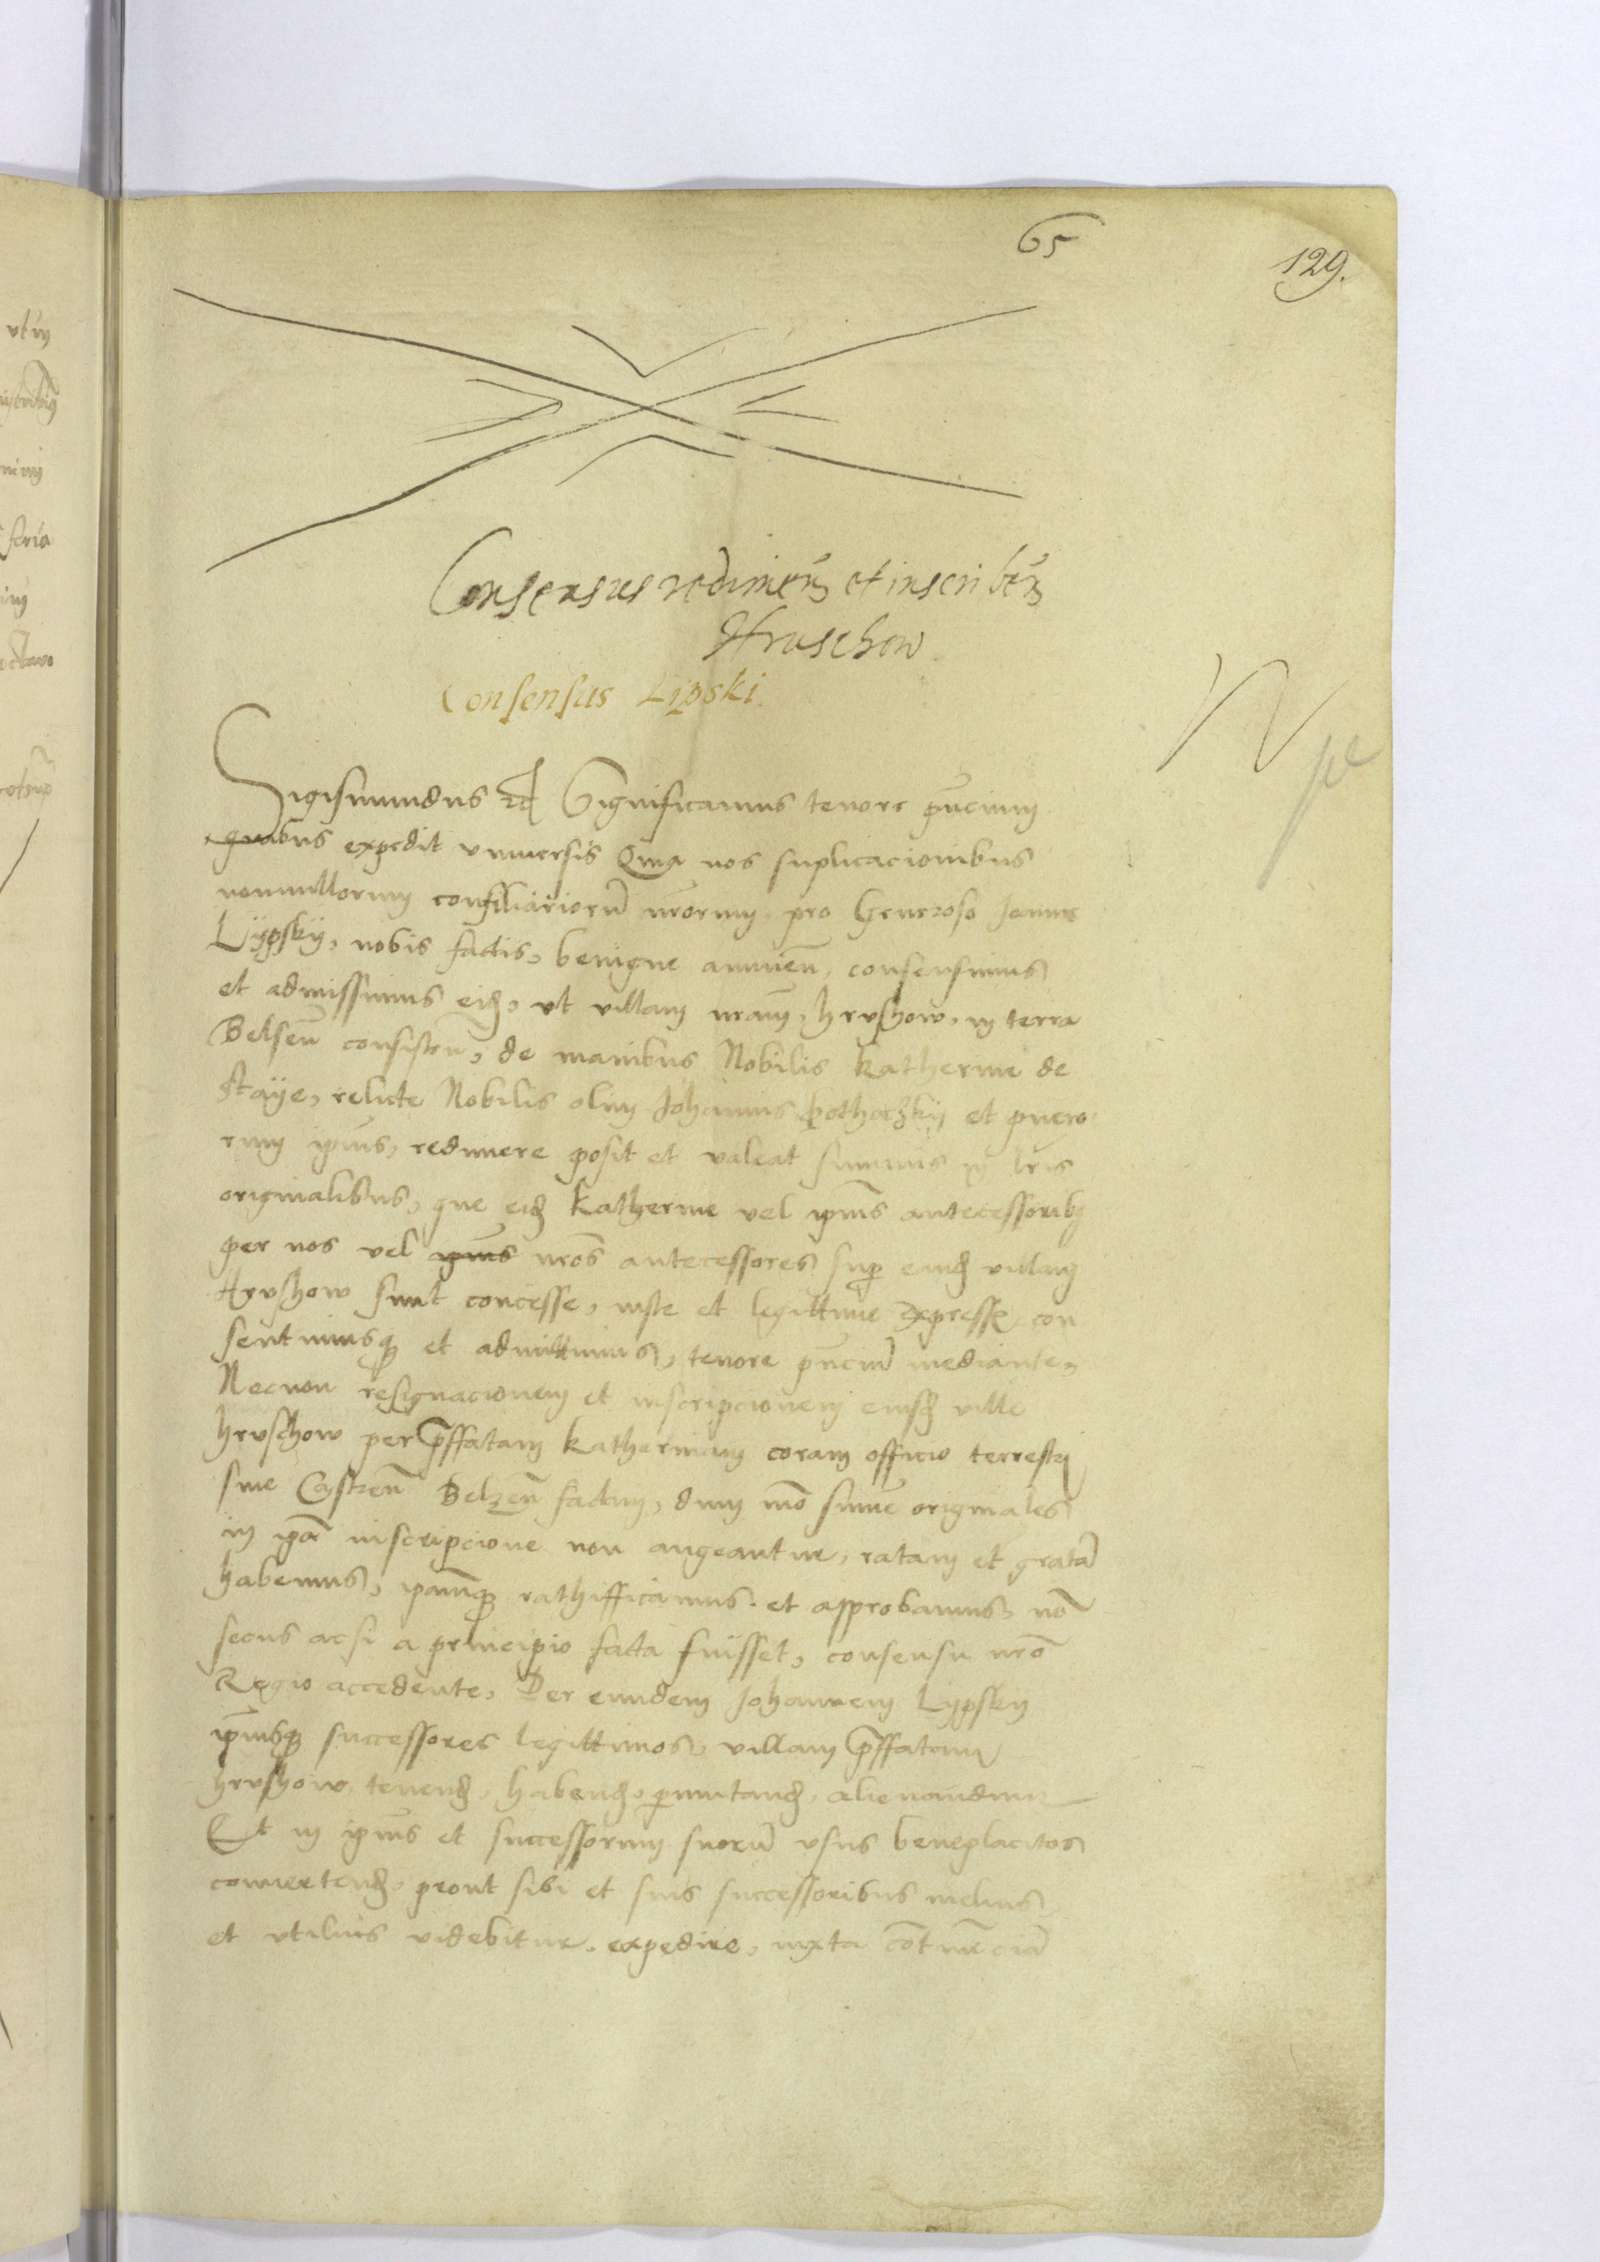 65
129.
Consensus redimen et inscriben
Hruschow
Consensus Lipski
Sigismundus etc Significamus tenore pñcium
quibus expedit vniuersis Quia nos suplicacionibus
nonnullorum consiliariorũ nrorum pro Generoso Ioanne
Lÿpskÿ, nobis factis, benigne annueñ, consensimus
et admissimus eid, vt villam nram, hrushow, in terra
Belseñ consisteñ, de manibus Nobilis Katherine de
Staÿe, relicte Nobilis olim Johannis Pothoczkÿ et puero
rum ipius, redimere posit et valeat summis in lris
originalibus, que eid Katherine vel ipius antecessorib
per nos vel ipius nros antecessores sup eand villam
Hrushow sunt concesse, iuste et legittime expresse con
sentimusq et admittimus, tenore pñciũ mediante,
Necnon resignacionem et inscripcionem eiusd ville
hruschow per pffatam Katherinam coram officio terrestri
siue Castreñ Belzeñ factam, dum mõ sume originales
in ipa inscripcione non augeantur, ratam et gratã
habemus, ipamq rathifficamus et approbamus, nõ
secus acsi a principio facta fuisset, consensu nro
Regio accedente, Per eundem Johannem Lypsky
ipiusq successores legittimos, villam pffatam
hrushow, tenend, habend, pmutand, alienandum
Et in ipius et successorum suorũ vsus beneplacitos
conuertend, prout sibi et suis successoribus melius
et vtilius videbitur, expedire, iuxta